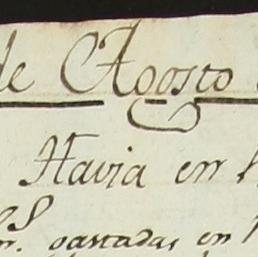 de Agosto
Havia en
gastadas en